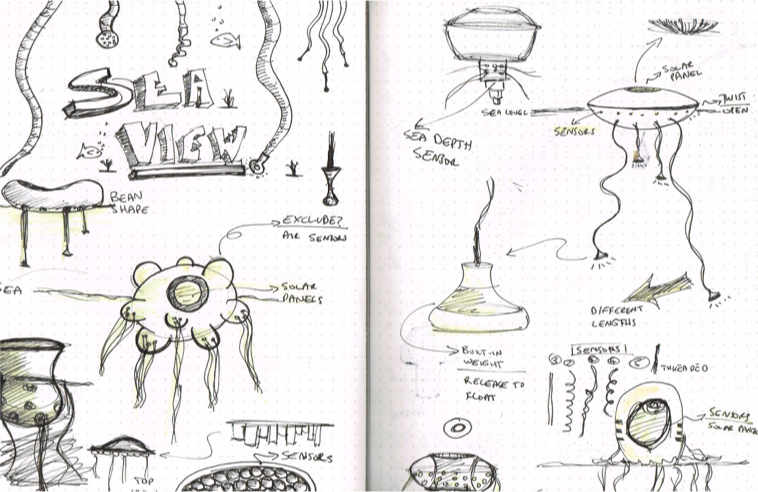 SEA
VIEW
BEAN
SHAPE
EXCLUDE?
AIR SENSORS
SEA
SOLAR
PANELS
SENSORS
TOP
SOLAR
PANEL
SEA LEVEL
TWIST
OPEN
SENSORS
SEA DEPTH
SENSOR
DIFFERENT
LENGTHS
BUILT-IN
WEIGHT
RELEASE TO
FLOAT
SENSORS
THREADED
SENSORS
SOLAR PANEL